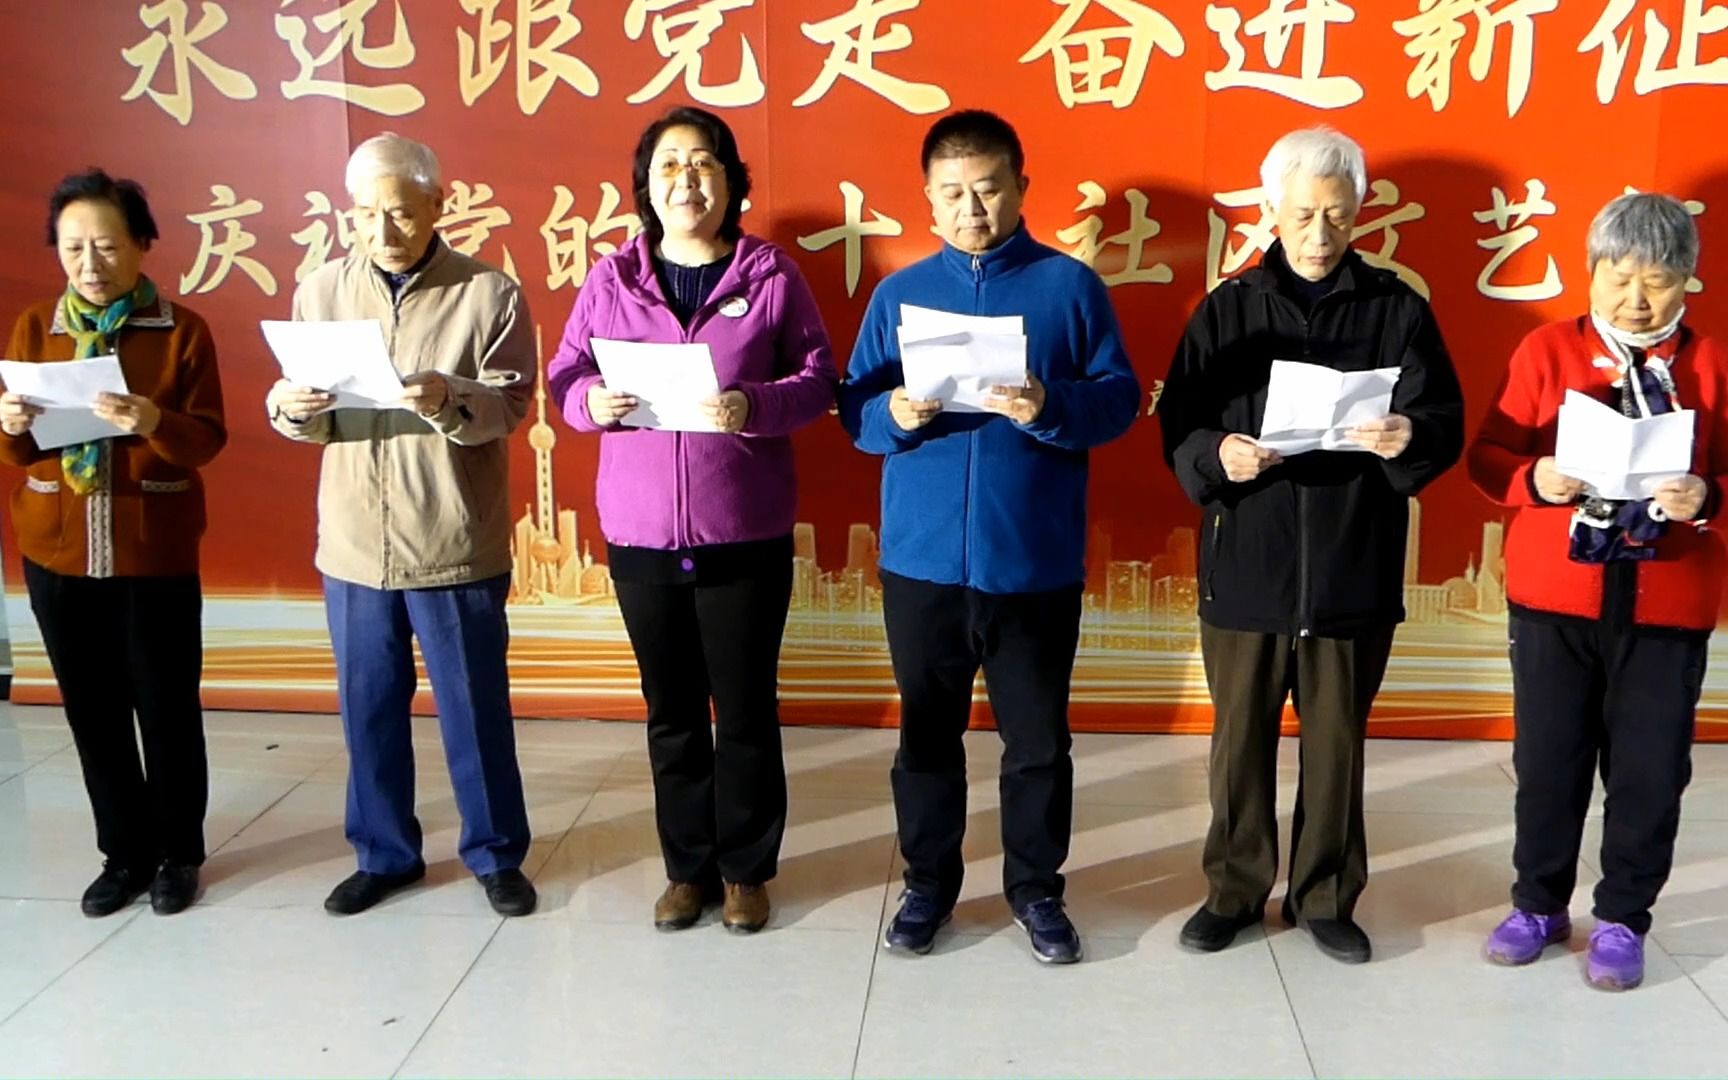 永远跟党走 奋进新征
庆祝党的 十 社区文艺